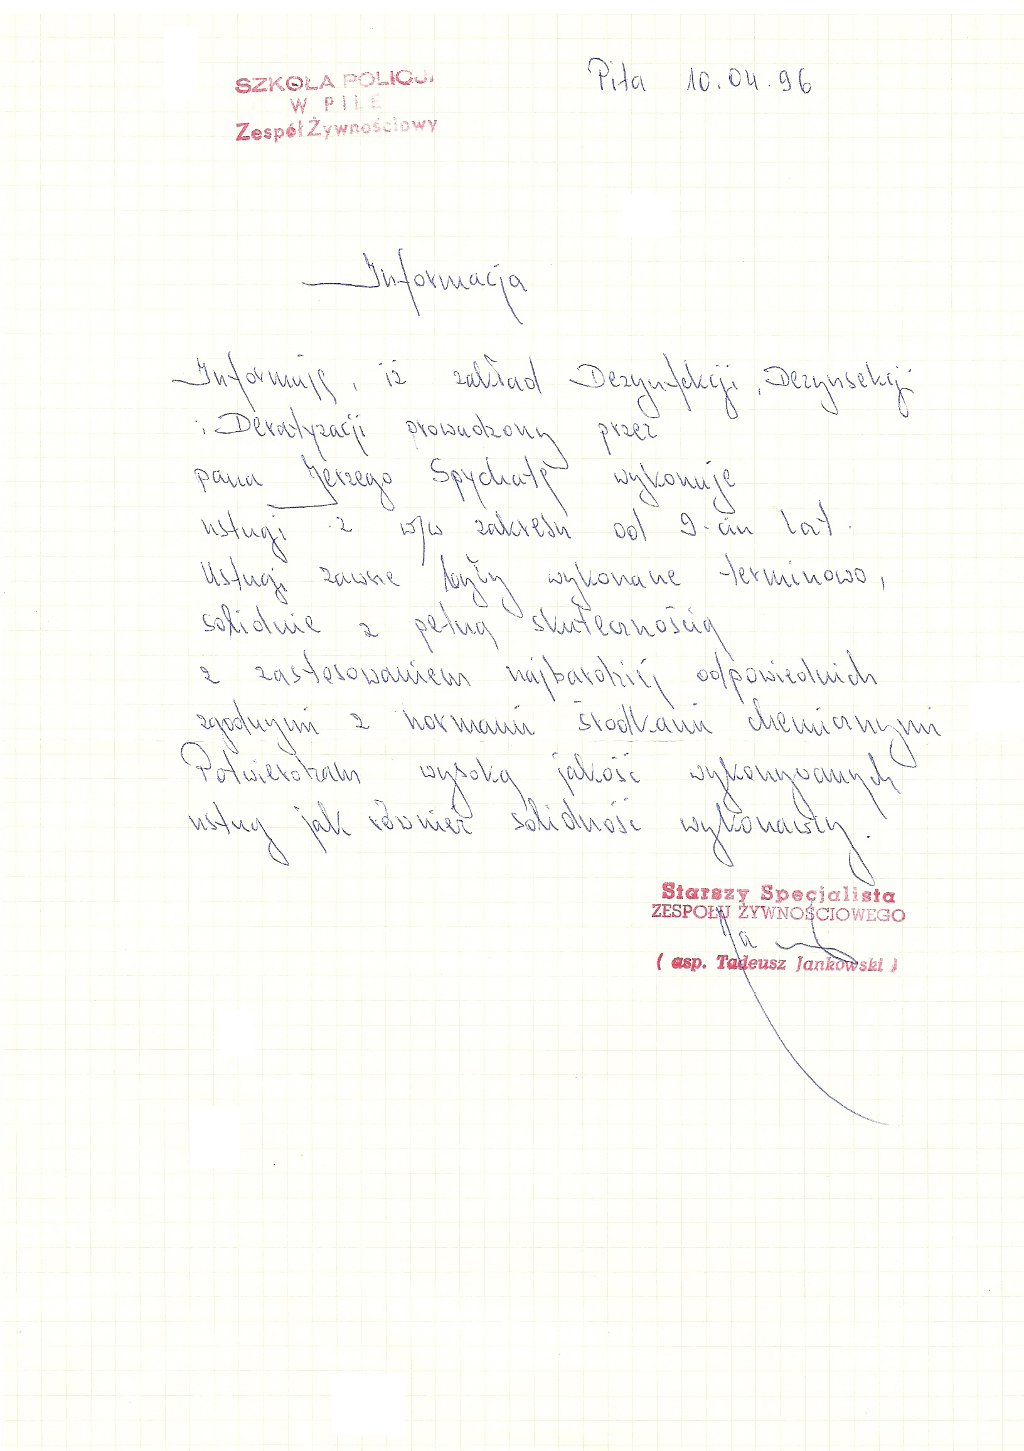 SZKOŁA POLICJI
W PILE
Zespół Żywnościowy
Piła 10.04.96
Informacja
Informuję, iż zakład Dezynfekcji, Dezynsekcji
i Deratyzacji prowadzony przez
pana Jerzego Spychałę wykonuje
usługi z w/w zakresu od 9-ciu lat.
Usługi zawsze były wykonane terminowo,
solidnie z pełną skutecznością
z zastosowaniem najbardziej odpowiednich
zgodnymi z normami środkami chemicznymi
Potwierdzam wysoką jakość wykonywanych
usług jak również solidność wykonawcy.
Starszy Specjalista
ZESPOŁU ŻYWNOŚCIOWEGO
( asp. Tadeusz Jankowski )